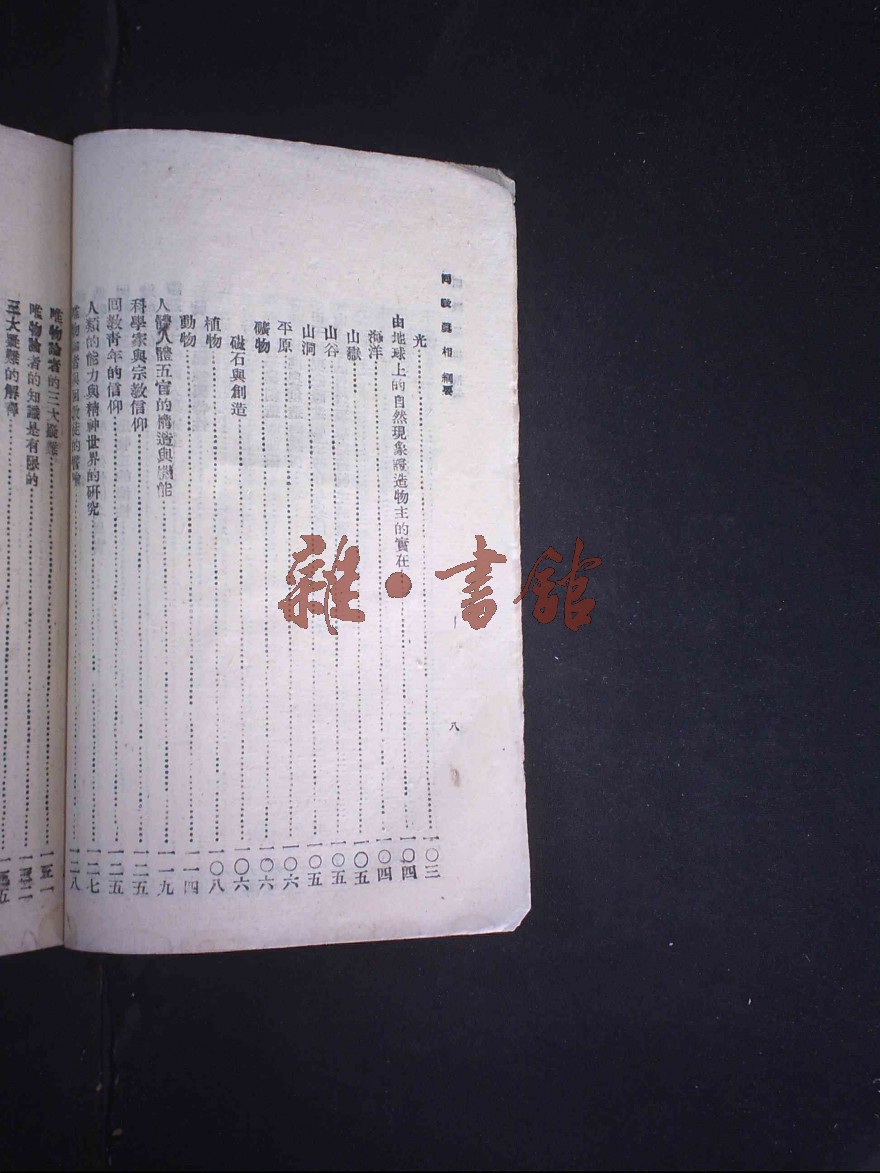 回教眞相 綱要
八
光 一〇三
由地球上的自然現象證造物主的實在 一〇四
海洋 一〇四
山嶽 一〇五
山谷 一〇五
山洞 一〇五
平原 一〇六
礦物 一〇六
磁石與創造 一〇六
植物 一〇八
動物 一一四
人體 人體五官的構造與機能 一一九
科學家與宗教信仰 一二五
回教靑年的信仰 一二五
人類的能力與精神世界的研究 一二七
唯物論者與回教徒的譬喩 一二八
唯物論者的三大疑難
唯物論者的知識是有限的
三大疑難的解釋
雜·書館